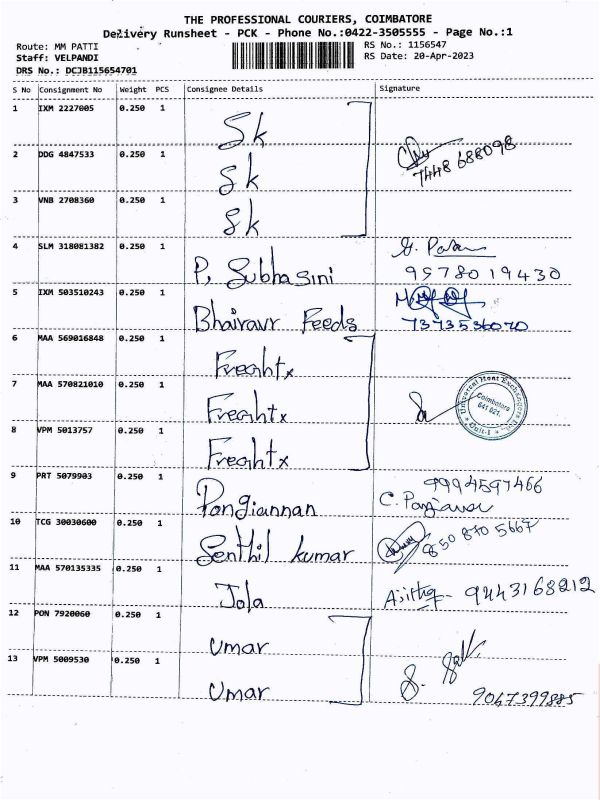 THE PROFESSIONAL COURIERS, COIMBATORE
Delivery Runsheet - PCK - Phone No.:0422-3505555 - Page No.:1
Route: MM PATTI
RS No.: 1156547
Staff: VELPANDI
RS Date: 20-Apr-2023
DRS No.: DCJB115654701
S No Consignment No Weight PCS Consignee Details Signature
1 IXM 2227005 0.250 1 Sk
2 DDG 4847533 0.250 1 Sk 7448 688098
3 VNB 2708360 0.250 1 Sk
4 SLM 318081382 0.250 1 P. Subhasini
9578019430
5 IXM 503510243 0.250 1 Bhairavr Feeds
7373536070
6 MAA 569016848 0.250 1 Freghtx
7 MAA 570821010 0.250 1 Freghtx
Universal Heat Exchangers
Coimbatore
641 021.
Unit-I
8 VPM 5013757 0.250 1 Freghtx
9 PRT 5079903 0.250 1 Pongiannan 9994597466
10 TCG 30030600 0.250 1 Senthil kumar 850 870 5667
11 MAA 570135335 0.250 1 Jola Ajitha 9443168212
12 PON 7920060 0.250 1 Umar
13 VPM 5009530 0.250 1 Umar
9047399885